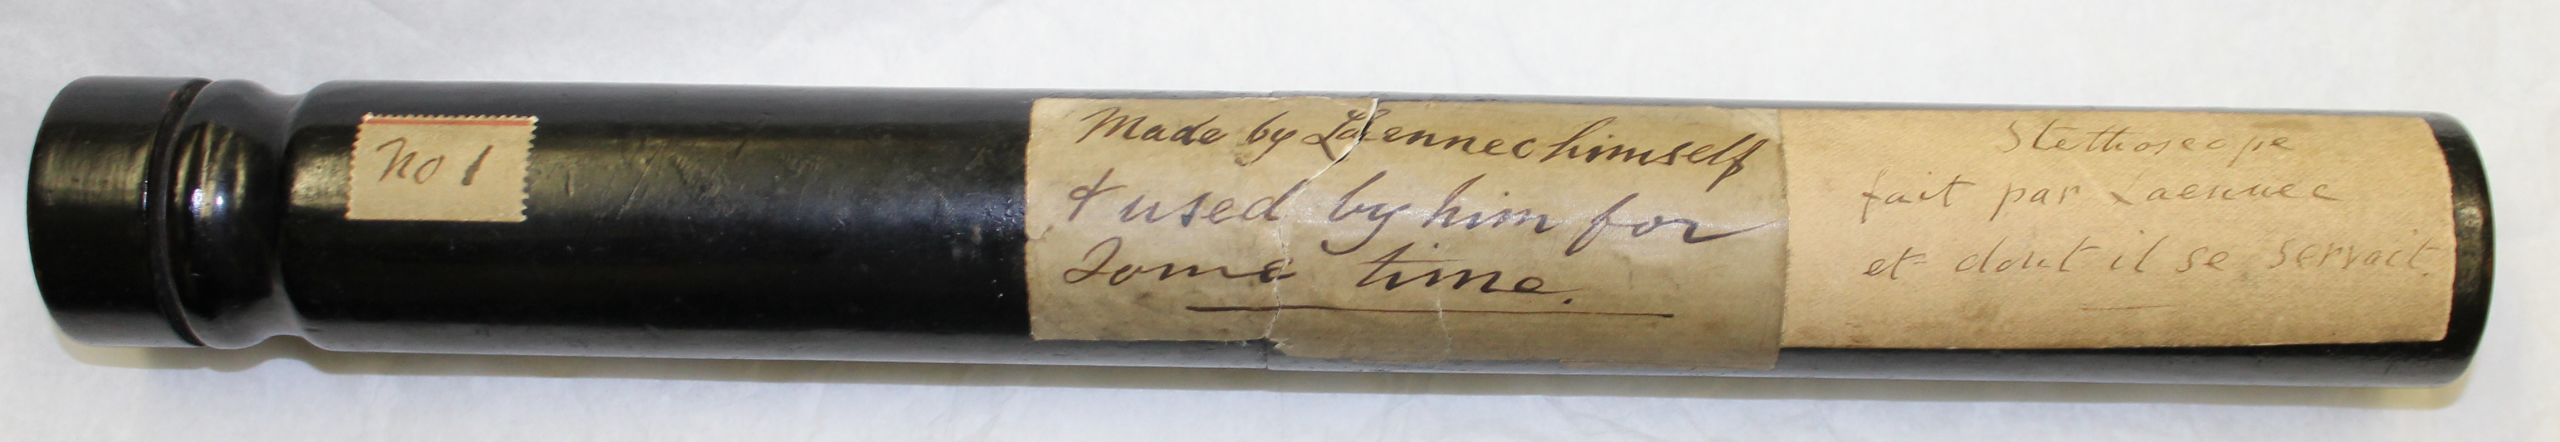 No 1
Made by Laennec himself
& used by him for
Some time.
Stethoscope
fait par Laennec
et dont il se servait.